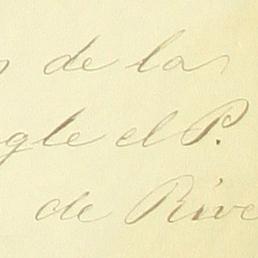 de la
gle el P.
de Rive